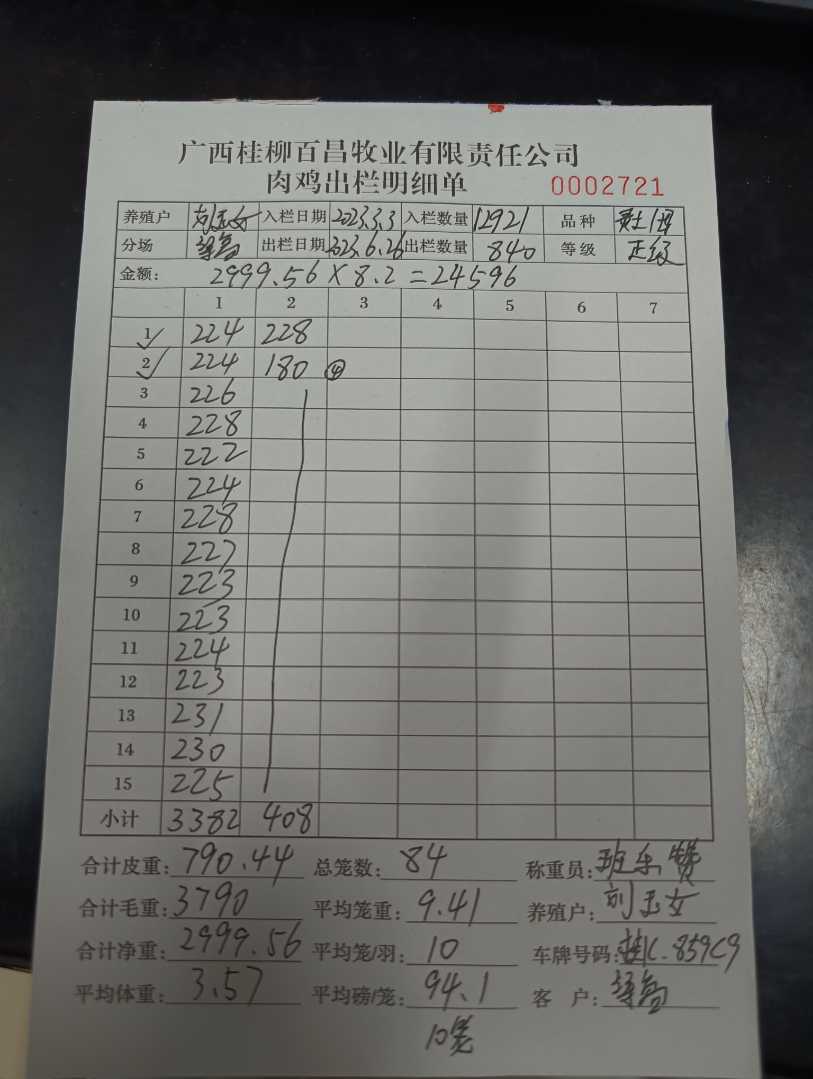 广西桂柳百昌牧业有限责任公司
肉鸡出栏明细单 0002721
养殖户 刘玉女 入栏日期 2023.3.3 入栏数量 12921 品种
分场 出栏日期 2023.6.26 出栏数量 840 等级 正级
金额: 2999.56×8.2=24596
1 2 3 4 5 6 7
1 224 228
2 224 180 ④
3 226
4 228
5 222
6 224
7 228
8 227
9 223
10 223
11 224
12 223
13 231
14 230
15 225
小计 3382 408
合计皮重: 790.44 总笼数: 84 称重员: 班乐赞
合计毛重: 3790 平均笼重: 9.41 养殖户: 刘玉女
合计净重: 2999.56 平均笼/羽: 10 车牌号码: 桂K.859C9
平均体重: 3.57 平均磅/笼: 94.1 客户:
10笼